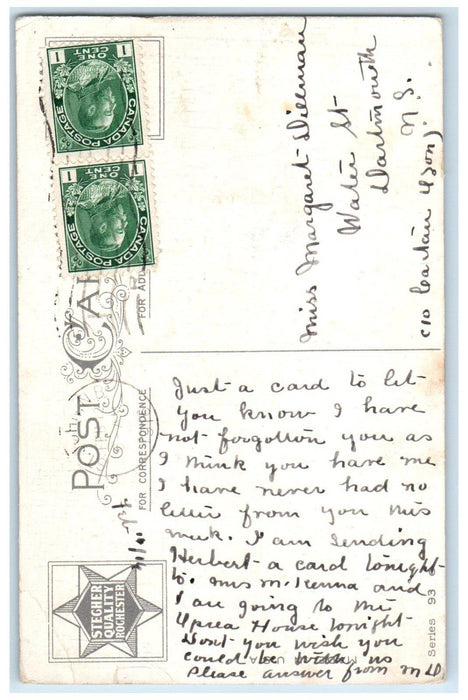 CANADA POSTAGE
1 ONE CENT 1
CANADA POSTAGE
1 ONE CENT 1
POST CA
FOR CORRESPONDENCE
STECHER
QUALITY
ROCHESTER
Series 93
Just a card to let
you know I have
not forgotton you as
I think you have me
I have never had no
letter from you this
week. I am sending
Herbert a card tonight
to. Mrs McKenna and
I are going to the
Opera House tonight
Dont you wish you
could be with us
Please answer from MD
Miss Margaret Dillman
Water St
Dartmouth
N.S.
c/o